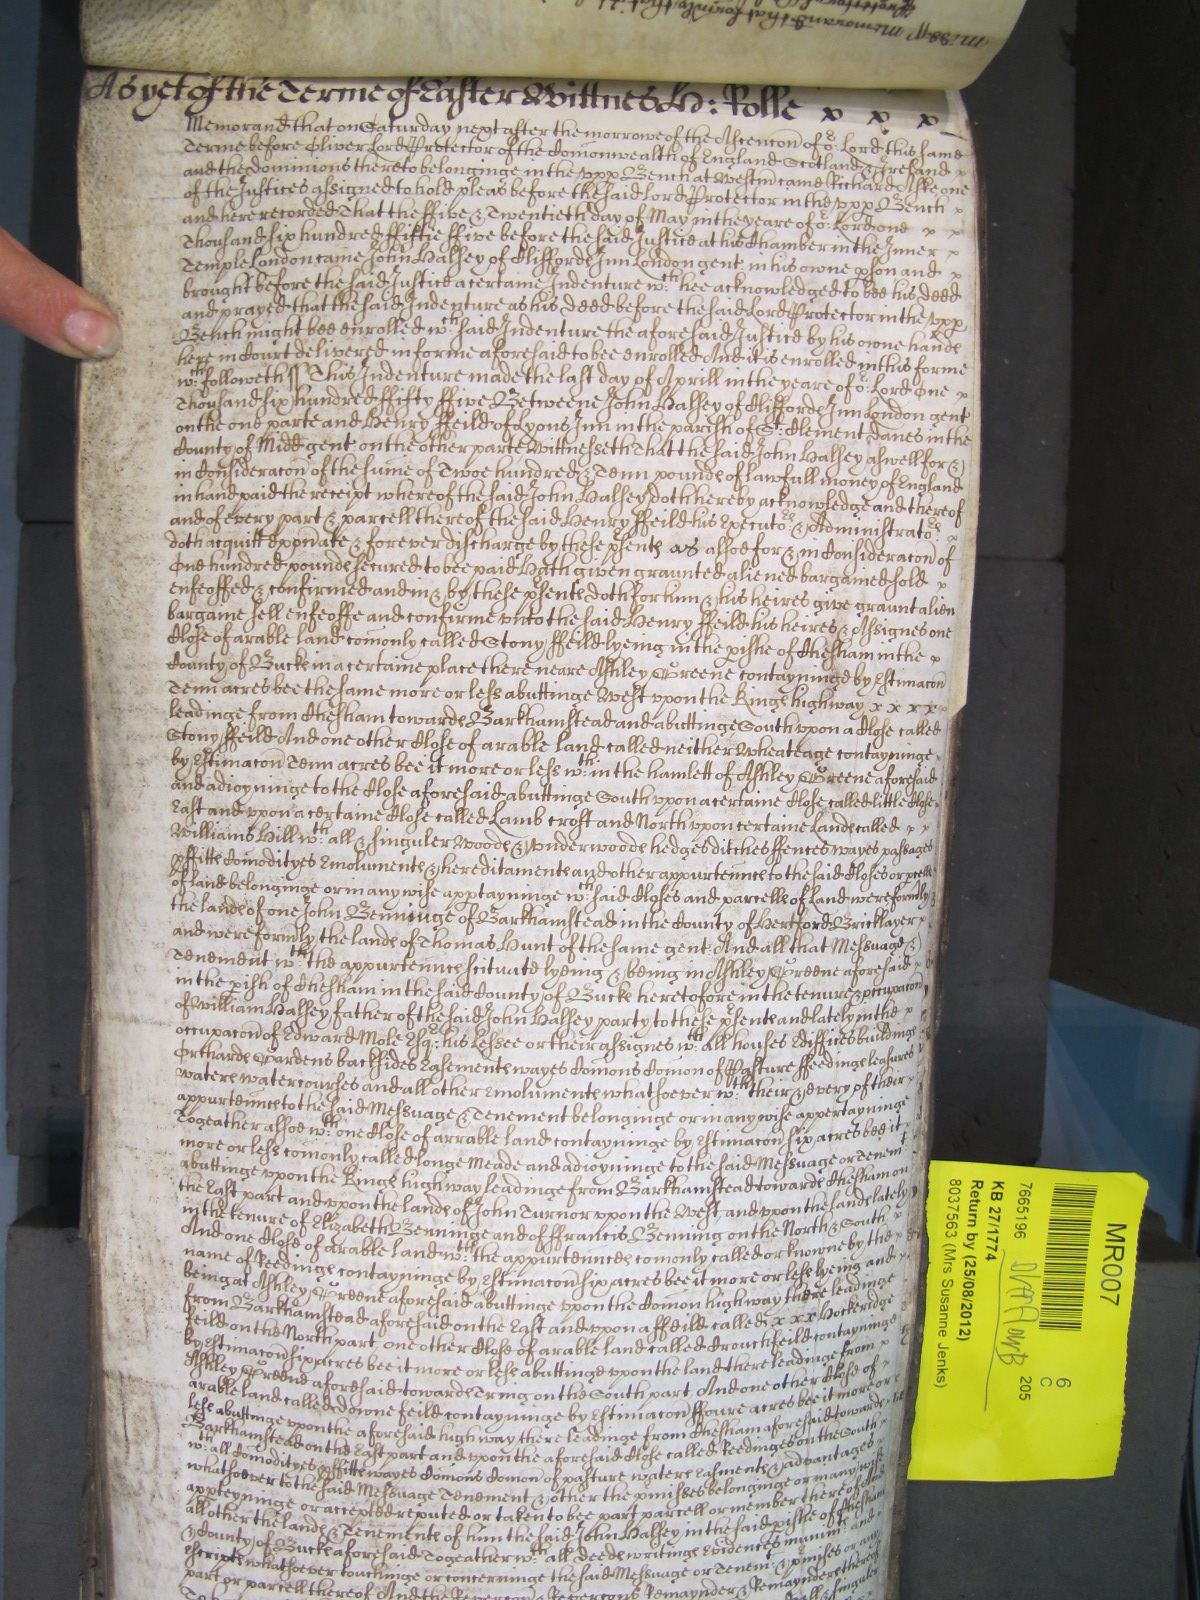 As yet of the Terme of Easter Wittnes H: Rolle x x x
Memorand that on Saturday next after the morrowe of the Ascencon of or Lord this same
Terme before Oliver Lord Protector of the Comonwealth of England Scotland & Ireland
and the dominions thereto belonginge in the vpp Bench at Westm came Richard Aske one
of the Justices assigned to hold pleas before the said Lord Protector in the vpp Bench
and here recorded That the ffive & Twentieth day of May in the yeare of or Lord one
Thousand six hundred ffiftie ffive before the said Justice at his Chamber in the Inner
Temple London came John Halsey of Cliffords Inn London gent in his owne pson and
brought before the said Justice a certaine Indenture wch hee acknowledged to bee his deed
and prayed that the said Indenture as his deed before the said Lord Protector in the vpp
Bench might bee enrolled wch said Indenture the aforesaid Justice by his owne hands
here in Court delivered in forme aforesaid to bee enrolled And it is enrolled in this forme
wch followeth ss This Indenture made the last day of Aprill in the yeare of or Lord One
Thousand six hundred ffifty ffive Betweene John Halsey of Cliffords Inn London gent
on the one parte and Henry ffeild of Lyons Inn in the parish of St Clement Danes in the
County of Midd gent on the other parte Wittnesseth That the said John Halsey aswell for &
in Consideracon of the sume of Twoe hundred & Tenn pounds of lawfull money of England
in hand paid the receipt whereof the said John Halsey doth hereby acknowledge and thereof
and of every part & parcell thereof the said Henry ffeild his Executors & Administrators
doth acquitt exonate & for ever discharge by these psents as alsoe for & in Consideracon of
One hundred pounds secured to bee paid Hath given graunted aliened bargained sold
enfeoffed & confirmed and in & by these psents doth for him & his heires give graunt alien
bargaine sell enfeoffe and confirme vnto the said Henry ffeild his heires & Assignes one
Close of arable land comonly called Stony ffeild lyeing in the pishe of Chesham in the
County of Bucks in a certaine place there neare Ashley Greene contayninge by Estimacon
Tenn acres bee the same more or less abuttinge West vpon the Kings highway x x x x
leadinge from Chesham towards Barkhamstead and abuttinge South vpon a Close called
Stony ffeild And one other Close of arable land called neither Wheateage contayninge
by Estimacon Tenn acres bee it more or less wthin the hamlett of Ashley Greene aforesaid
and adioyninge to the Close aforesaid abuttinge South vpon a certaine Close called little Close
East and vpon a certaine Close called Lamb croft and North vpon certaine Lands called
Williams Hill wth all & singuler Woods & vnderwoods hedges ditches ffences wayes passages
pffitts Comodityes Emoluments & hereditaments and other appurtennces to the said Closes or pcells
of land belonginge or in any wise apptayninge wch said Closes and parcells of Land were formly
the lands of one John Benninge of Barkhamstead in the County of Hertford Bricklayer
and were formly the lands of Thomas Hunt of the same gent And all that Messuage &
Tenement wth the appurtennces scituate lyeing & being in Ashley Greene aforesaid
in the pish of Chesham in the said County of Bucks heretofore in the tenure & occupacon
of William Halsey father of the said John Halsey party to these psents and lately in the
occupacon of Edward Mole Esqr his Lessee or their assignes wth all houses Ediffices buildings
Orchards Gardens backsides Easements wayes Comons Comon of Pasture ffeedings leasures
waters watercourses and all other Emoluments whatsoever wth their & every of their
appurtennces to the said Messuage & Tenement belonginge or in any wise appertayninge
Togeather alsoe wth one Close of arrable land contayninge by Estimacon six acres bee it
more or less comonly called longe Meade and adioyninge to the said Messuage or Tenemt
abuttinge vpon the Kings highway leadinge from Barkhamstead towards Chesham on
the East part and vpon the lands of John Turnor vpon the West and vpon the lands lately
in the tenure of Elizabeth Benninge and of ffrancis Benning on the North & South
And one Close of arable land wth the appurtennces comonly called or knowne by the
name of Reedings contayninge by Estimacon six acres bee it more or less lyeing and
being at Ashley Greene aforesaid abuttinge vpon the Comon highway there leadinge
from Barkhamstead aforesaid on the East and vpon a ffeild called x x x Hockeridge
feild on the North part one other Close of arable land called Crouchfeild contayninge
by Estimacon six acres bee it more or less abuttinge vpon the land there leadinge from
Ashley Greene aforesaid towards Tring on the South part And one other Close of
arable land called downe feild contayninge by Estimacon ffoure acres bee it more or
less abuttinge vpon the aforesaid high way there leadinge from Chesham aforesaid towards
Barkhamstead on the East part and vpon the aforesaid Close called Reedinges on the South
wth all Comodityes pffitts wayes Comons Comon of pasture waters Easments & advantages
whatsoever to the said Messuage Tenement & other the pmisses belonginge or in any wise
appteyninge or accepted reputed or taken to bee part parcell or member thereof And
all other the lands & Tenements of him the said John Halsey in the said pishe of Chesham
& County of Bucks aforesaid Togeather wth all Deeds writings Evidences munimts and
Escripts whatsoever touchinge or concerninge the said Messuage or Tenemt & pmises or any
part or parcell thereof And the Revercon & Revercons Remaynder & Remaynders thereof
MR007
6
C
7665196
205
KB 27/1774
Return by (25/08/2012)
8037563 (Mrs Susanne Jenks)